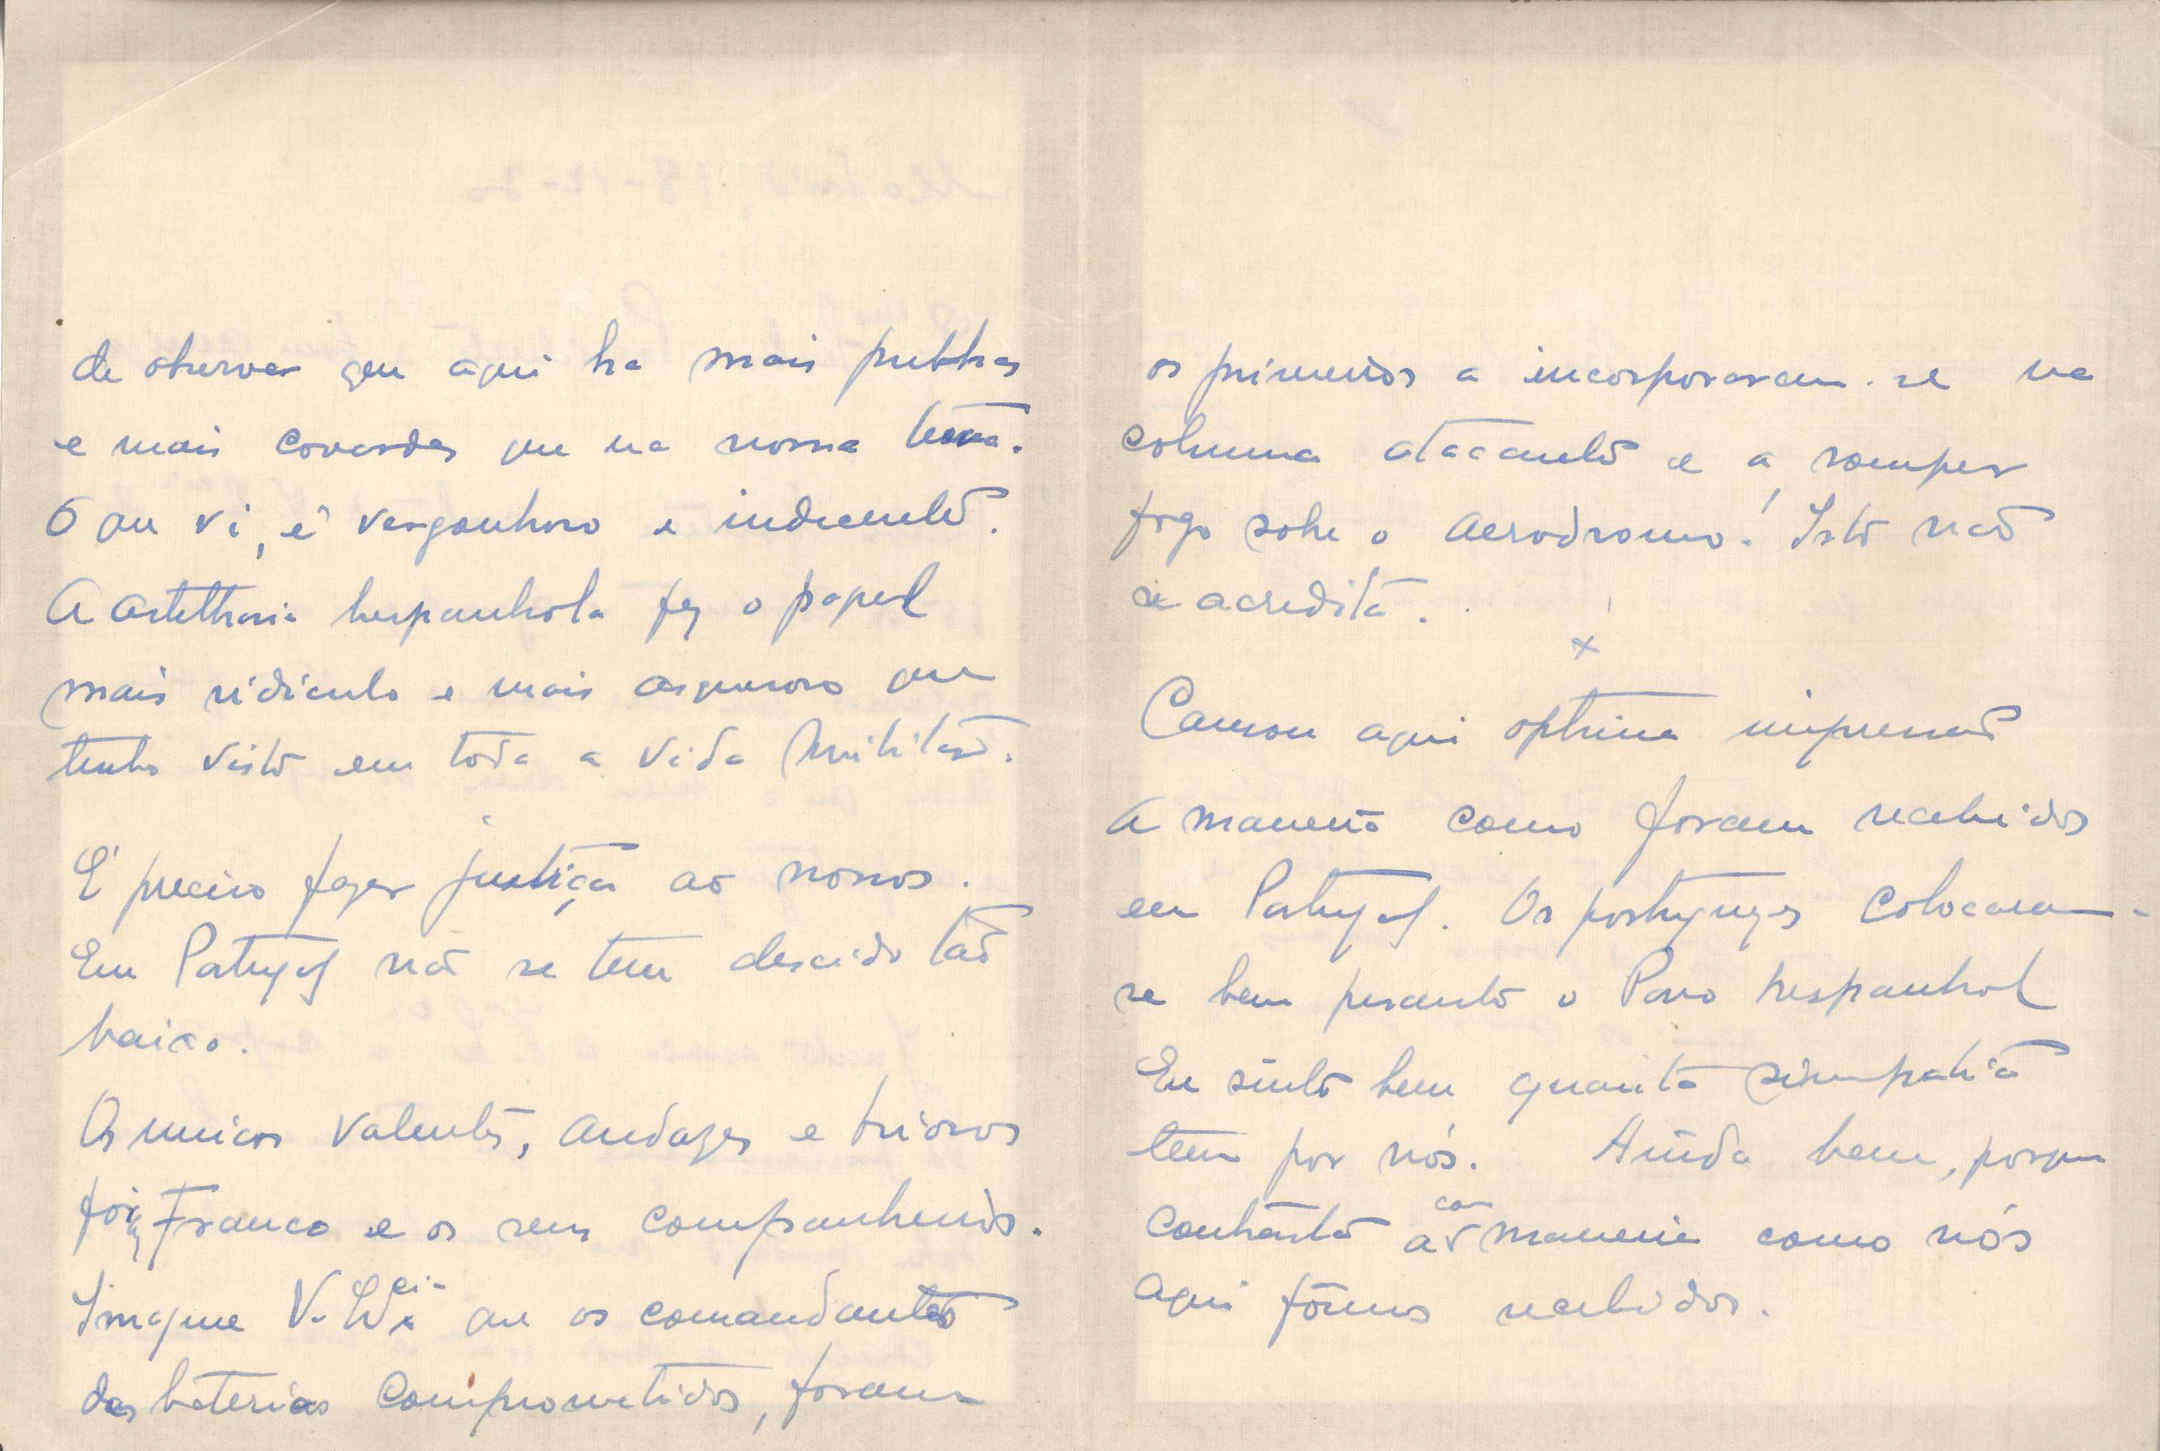 de observar que aqui ha mais pulhas
e mais covardes que na nossa terra.
O que vi, é vergonhoso e indecente.
A artelharia hespanhola fez o papel
mais ridiculo e mais asqueroso que
tenho visto em toda a vida militar.
É preciso fazer justiça aos nossos.
Em Portugal não se tem descido tão
baixo.
Os unicos valentes, audazes e briosos
foi Franco e os seus companheiros.
Imagine V. Ex.cia que os comandantes
das baterias comprometidos, foram
os primeiros a incorporarem-se na
columna atacante e a romper
fogo sobre o aerodromo! Isto não
se acredita.
x
Causou aqui optima impressão
a maneira como foram recebidos
em Portugal. Os portuguezes colocaram-
se bem perante o Povo hespanhol
Eu sinto bem quanta simpathia
tem por nós. Ainda bem, porque
contrasta com a maneira como nós
aqui fômos recebidos.